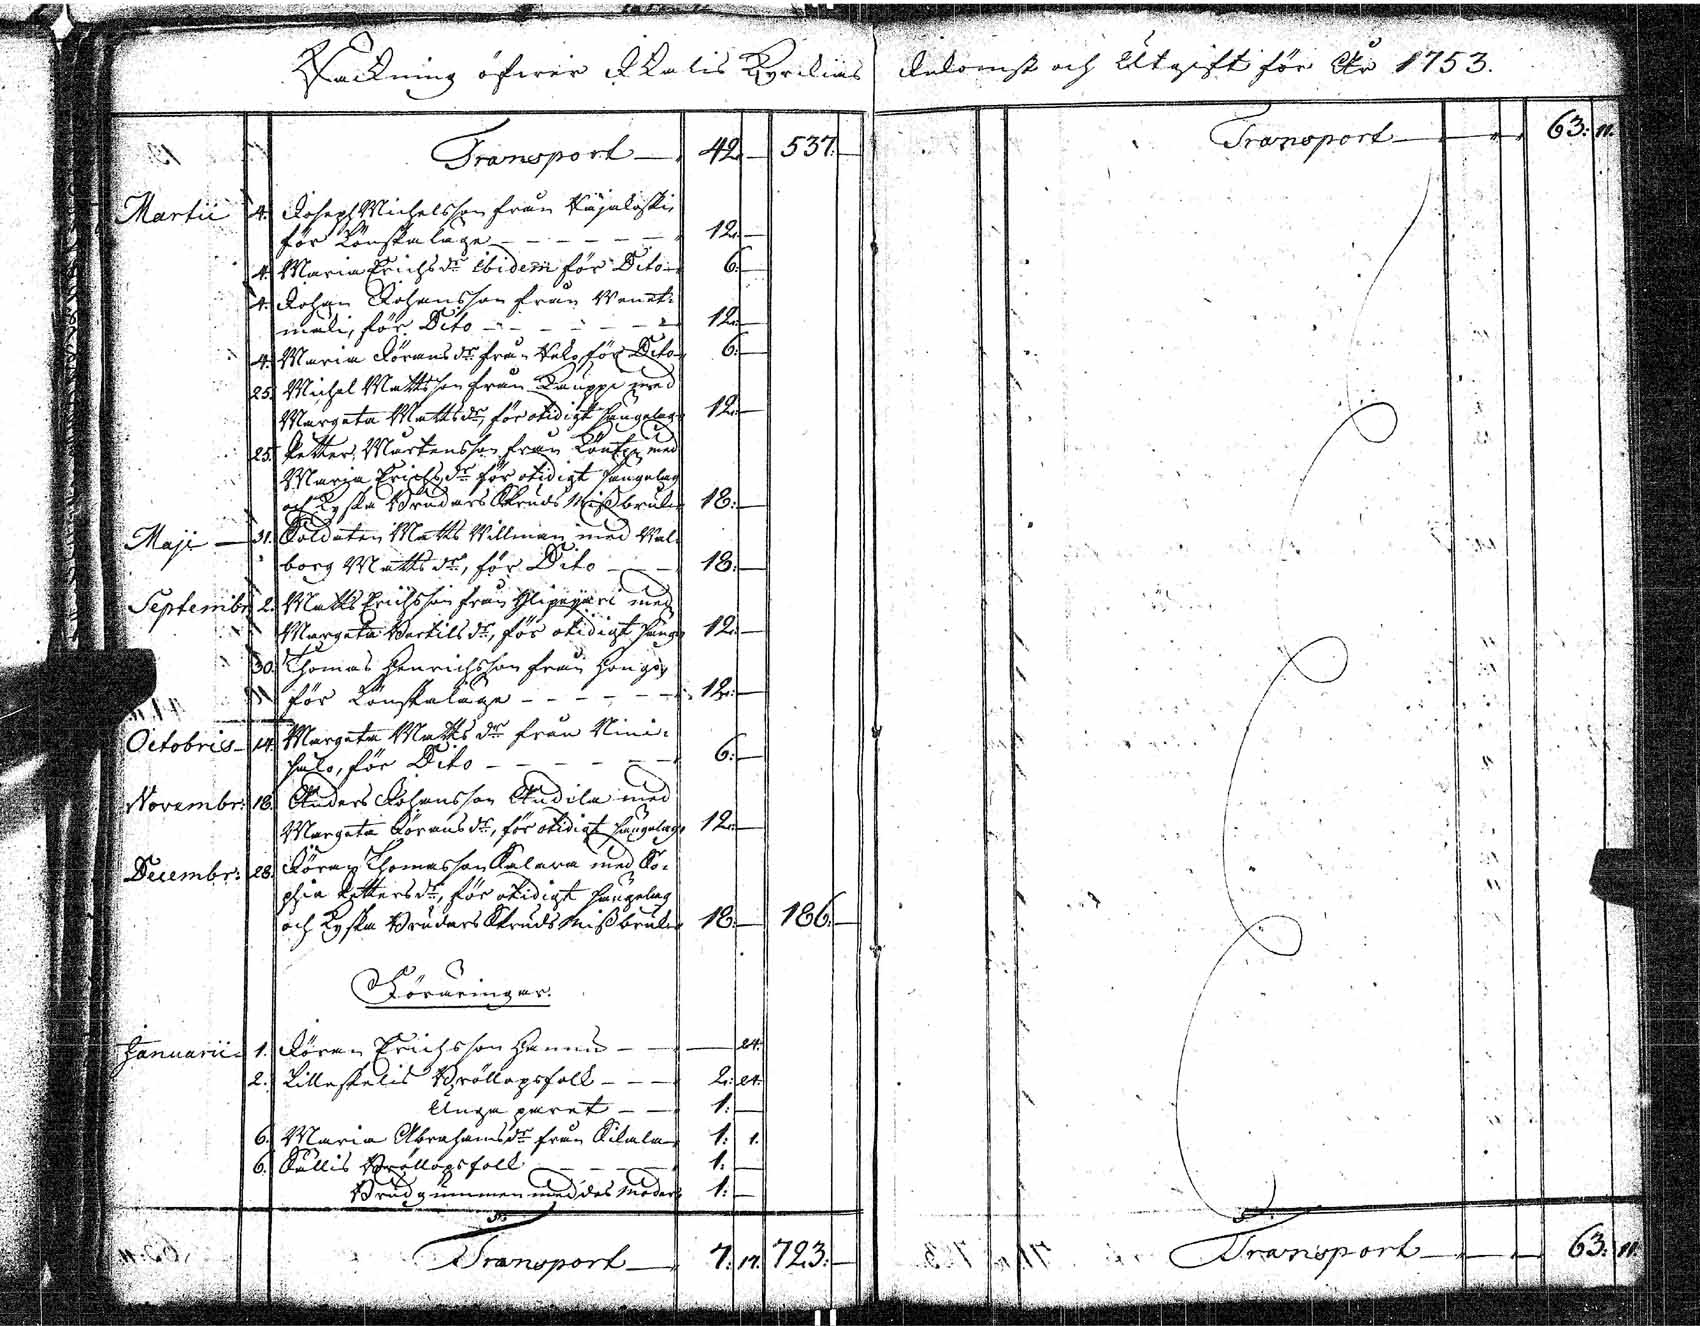 Räckning öfwer Ikalis Kyrckias Inkomst och Utgift för År 1753.
Transport — 42. — 537. —
Martii 4. Joseph Michelsson från
för Lönskaläge — — — 12. —
4. Maria Erichs dr ibidem för Dito — 6. —
4. Johan Johansson från Wenet=
mäki, för Dito — — — 12. —
4. Maria Jörans dr från för Dito 6. —
25. Michel Mattsson från Kauppi med
Margeta Matts dr, för otidigt sängelag 12. —
25. Petter Mårtensson från med
Maria Erichs dr för otidigt sängelag
och Kyska Brudars Skruds Missbruk 18. —
Maji — 31. Soldaten Matts Willman med Wal=
borg Matts dr, för Dito — — 18. —
Septembr. 2. Matts Erichsson från med
Margeta Bertils dr, för otidigt säng 12. —
30. Thomas Henrichsson från
för Lönskaläge — — — 12. —
Octobris — 14. Margeta Matts dr från Nini=
salo, för Dito — — — 6. —
Novembr: 18. Anders Johansson Andila med
Margeta Jörans dr, för otidigt sängelag 12. —
Decembr: 28. Jöran Thomasson Salava med So=
phia Petters dr, för otidigt sängelag
och Kyska Brudars Skruds Missbruk 18. — 186. —
Föräringar.
Januarii 1. Jöran Erichsson — — 24.
2. Bröllopsfolk — — — 2. 24.
Unga paret — — 1. —
6. Maria Abrahams dr från — 1. 1.
6. Bröllopsfolk — — 1. —
Brudgummen med des moder 1. —
Transport — 7. 17. 723. —
Transport — 63. 11.
Transport — 63. 11.